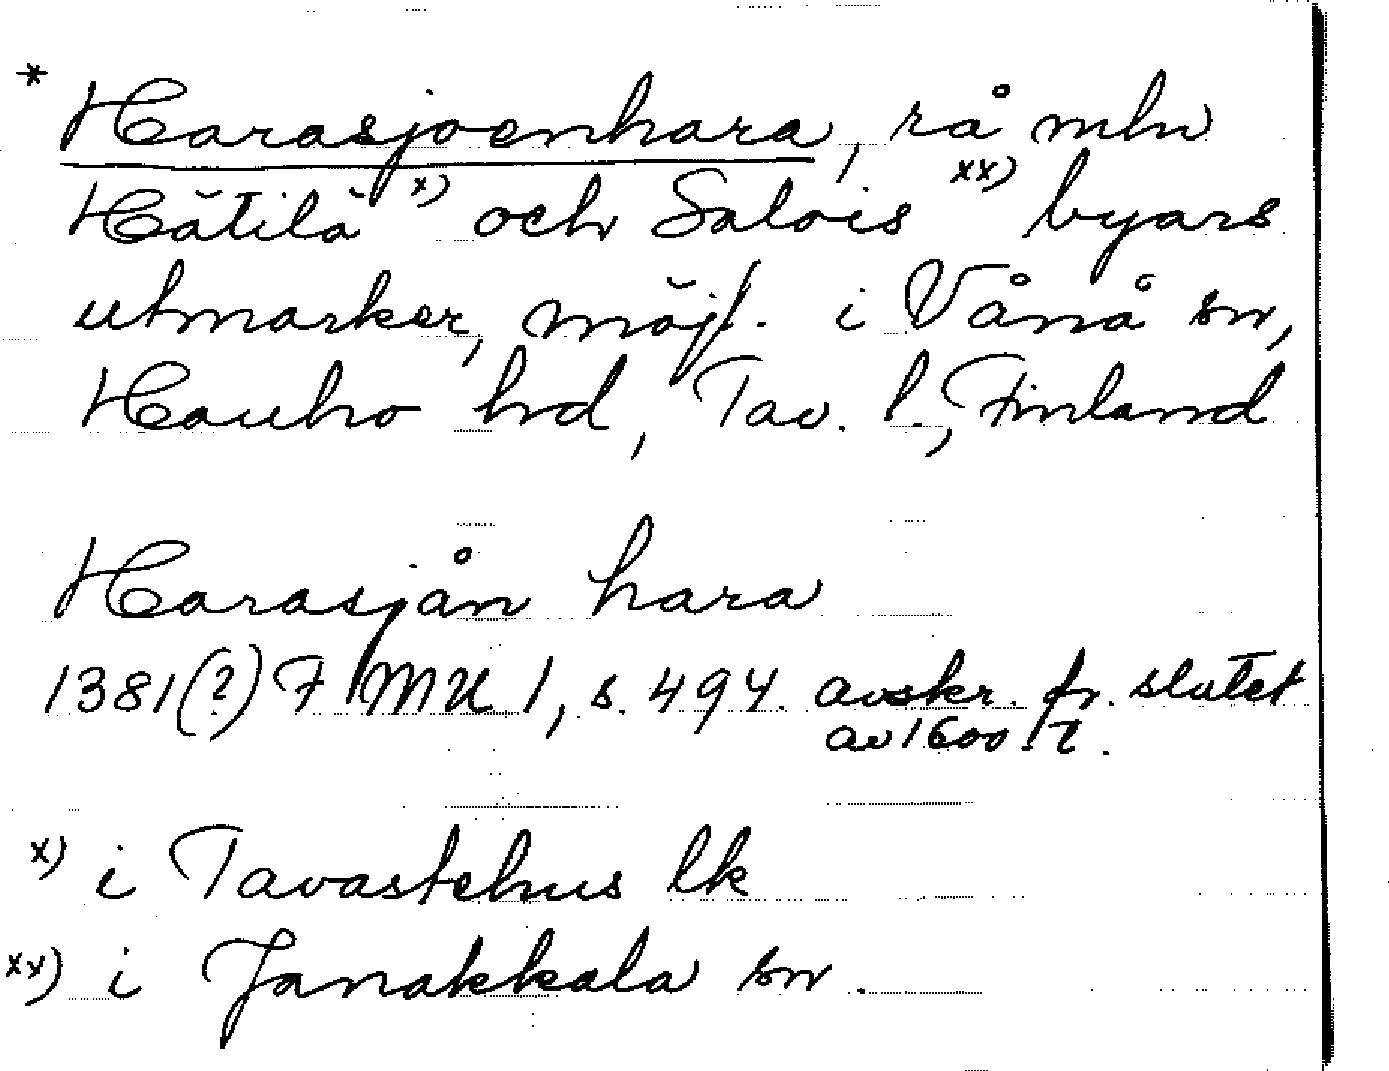 * Harasjoenhara, rå mln
Hätilä x) och Salois xx) byars
utmarker, möjl. i Vånå sn,
Hauho hd, Tav. l., Finland
Harasjån hara
1381(?) FMU 1, s. 494 avskr. fr. slutet
av 1600-t.
x) i Tavastehus lk
xx) i Janakkala sn.